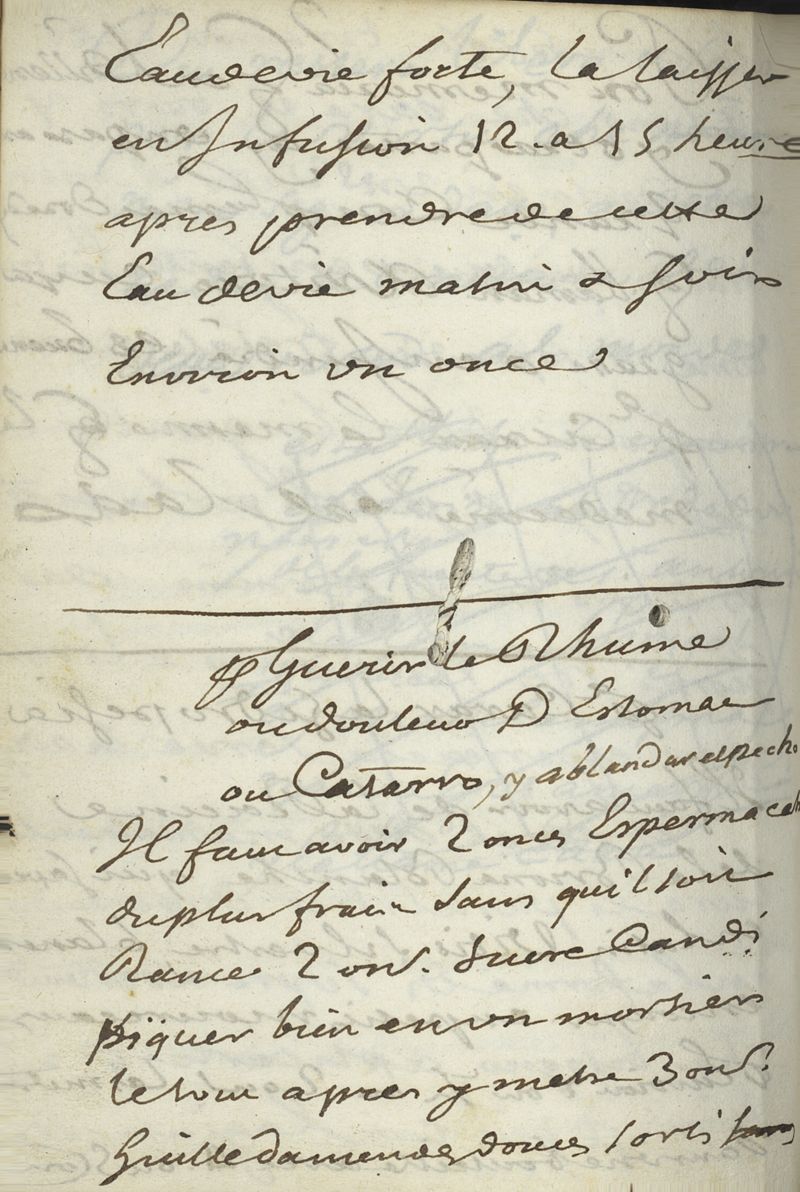 Eaudevie forte, la laisser
en Infusion 12. a 15 heure
apres prendre de cette
Eau devie matin & soir
Environ vn once
pr Guerir le Rhume
ou douleur D Estomac
ou Catarro, y ablandar el pecho
Il faut avoir 2 onces Espermacati
du plus frais sans qu'il soit
Rance 2 onc. Sucre Candi
piquer bien en vn mortier
le tout apres y metre 3 onc.
Huille damendes douces sorti